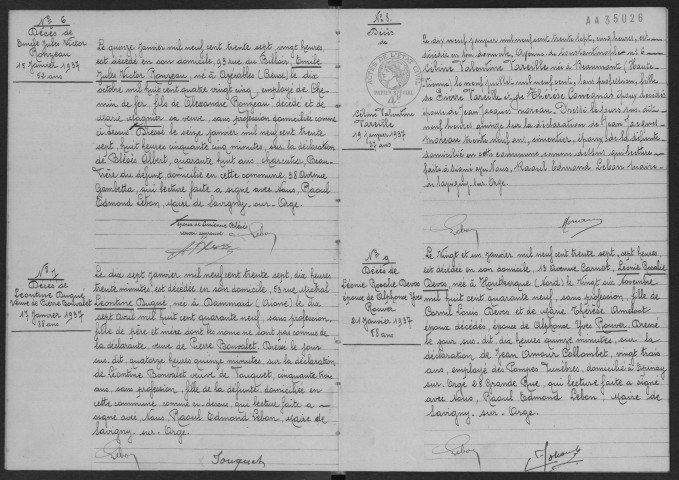 N° 6
Décès de
Emile Jules Victor
Ronzeau
15 Janvier 1937
56 ans
Le quinze Janvier mil neuf cent trente sept, vingt heures,
est décédé en son domicile, 93 rue du Billoir, Emile
Jules Victor Ronzeau, né à (Creuse) le dix
octobre mil huit cent quatre vingt, employé de Che-
min de fer, fils de Alexandre Ronzeau, décédé et de
Marie Magnier sa veuve, sans profession, domiciliée comme
ci-dessus. Dressé le seize janvier mil neuf cent trente
sept, huit heures cinquante cinq minutes, sur la déclaration
de Blésès Albert, quarante huit ans, charcutier, Beau-
frère du défunt, domicilié en cette commune, 38 Avenue
Gambetta, qui lecture faite a signé avec Nous, Raoul
Edmond Lebon, Maire de Savigny-sur-Orge.
Lebon
N° 7
Décès de
Léontine Dugué
Veuve de Pierre Bonvalet
17 Janvier 1937
88 ans
Le dix sept Janvier mil neuf cent trente sept, dix heures
trente minutes, est décédée en son domicile, 53 rue Mistral
Léontine Dugué, née à Dammard (Aisne) le dix
sept Avril mil huit cent quarante neuf, sans profession,
fille de père et mère dont les noms ne sont pas connus de
la déclarante, veuve de Pierre Bonvalet. Dressé le jour
sus-dit, quatorze heures quinze minutes, sur la déclaration
de Léontine Bonvalet veuve de Fouquet, cinquante trois
ans, sans profession, fille de la défunte, domiciliée en
cette commune, comme ci-dessus, qui lecture faite a
signé avec Nous, Raoul Edmond Lebon, Maire de
Savigny-sur-Orge.
Lebon
Fouquet
AA35026
N° 8
Décès de
PAPIER SPECIAL
Célina Valentine
Vareille
19 Janvier 1937
Le dix neuf Janvier mil neuf cent trente sept, cinq heures, est
décédée en son domicile, Avenue de Constantinople n° 6
Célina Valentine Vareille née à Beaumont (Haute-
Vienne) le neuf juillet mil neuf cent, sans profession, fille
de Pierre Vareille et de Thérèse époux décédés,
épouse de Jean Jacques Moreau. Dressé le jour sus-dit,
neuf heures sur la déclaration de Jean Jacques
Moreau, trente neuf ans, cimentier, époux de la défunte
domicilié en cette commune comme dessus qui lecture
faite a signé avec Nous, Raoul Edmond Lebon Maire
de Savigny-sur-Orge.
Lebon
Moreau
N° 9
Décès de
Léonie Rosalie Devos
épouse de Alphonse Yves
Pouwer
21 Janvier 1937
88 ans
Le Vingt et un janvier mil neuf cent trente sept, sept heures,
est décédée en son domicile, 13 Avenue Carnot, Léonie Rosalie
Devos, née à Houtkerque (Nord) le vingt six Novembre
mil huit cent quarante neuf, sans profession, fille de
Cornil Louis Devos et de Marie Thérèse Ameloot
époux décédés, épouse de Alphonse Yves Pouwer. Dressé
le jour sus-dit, dix heures quinze minutes, sur la
déclaration de Jean Amour Collombet, vingt trois
ans, employé des Pompes Funèbres, domicilié à Epinay
sur Orge 28 Grande Rue, qui lecture faite a signé
avec Nous, Raoul Edmond Lebon, Maire de
Savigny-sur-Orge.
Lebon